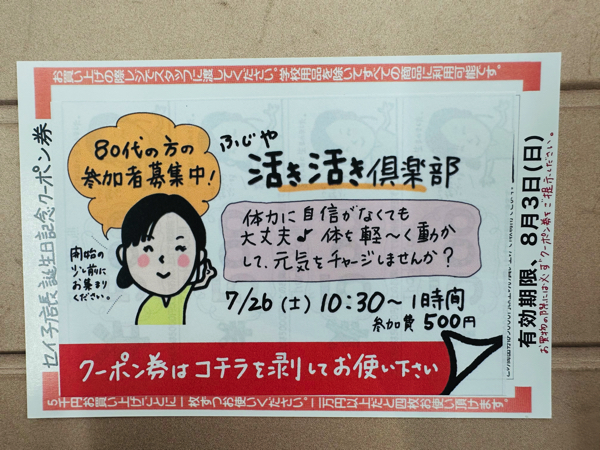 お買い上げの際レジでスタッフに渡してください。学校用品を除いてすべての商品に利用可能です。
セイ子店長誕生日記念クーポン券
80代の方の
参加者募集中!
ふじや
活き活き倶楽部
体力に自信がなくても
大丈夫♪体を軽〜く動か
して、元気をチャージしませんか?
開始の
少し前に
お集まり
ください。
7/26(土)10:30〜1時間
参加費500円
クーポン券はコチラを剥してお使い下さい
有効期限、8月3日(日)
お買物の際には必ずクーポン券をご提示ください。
5千円お買い上げごとに一枚ずつお使いください。二万円以上だと四枚お使い頂けます。